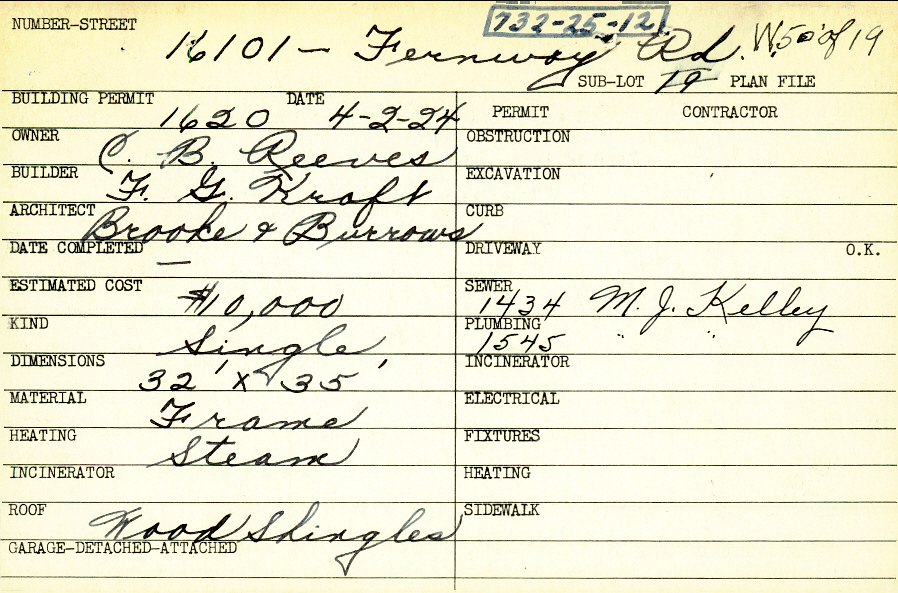 732-25-12
NUMBER-STREET 16101 - Fernway Rd. W50' of 19
SUB-LOT 19 PLAN FILE
BUILDING PERMIT 1620 DATE 4-2-24
OWNER C. B. Reeves
BUILDER F. G. Kraft
ARCHITECT Brooke & Burrows
DATE COMPLETED —
ESTIMATED COST $10,000
KIND Single
DIMENSIONS 32' X 35'
MATERIAL Frame
HEATING Steam
INCINERATOR
ROOF Wood Shingles
GARAGE-DETACHED-ATTACHED
PERMIT CONTRACTOR
OBSTRUCTION
EXCAVATION
CURB
DRIVEWAY O.K.
SEWER 1434 M. J. Kelley
PLUMBING 1545 " "
INCINERATOR
ELECTRICAL
FIXTURES
HEATING
SIDEWALK